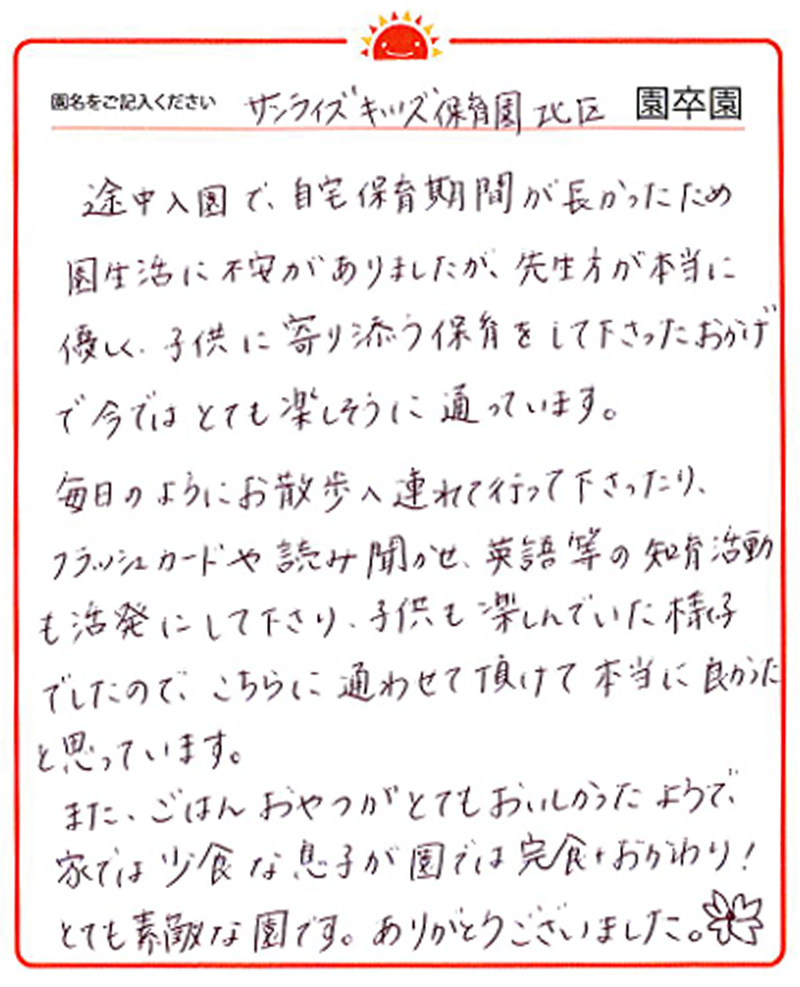 園名をご記入ください サンライズキッズ保育園 北区 園卒園
途中入園で、自宅保育期間が長かったため
園生活に不安がありましたが、先生方が本当に
優しく、子供に寄り添う保育をして下さったおかげ
で今ではとても楽しそうに通っています。
毎日のようにお散歩へ連れて行って下さったり、
フラッシュカードや読み聞かせ、英語等の知育活動
も活発にして下さり、子供も楽しんでいた様子
でしたので、こちらに通わせて頂けて本当に良かった
と思っています。
また、ごはんおやつがとてもおいしかったようで、
家では少食な息子が園では完食+おかわり!
とても素敵な園です。ありがとうございました。